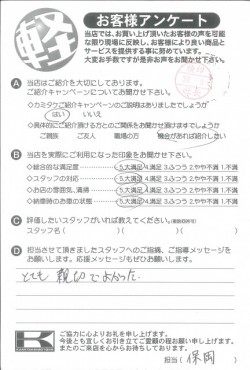 軽
お客様アンケート
当店では、お買い上げ頂いたお客様の声を可能
な限り現場に反映し、お客様により良い商品と
サービスを提供する事に努めています。
大変お手数ですが是非お声をお聞かせ下さい。
A 当店はご紹介を大切にしております。
ご紹介キャンペーンについてお聞かせ下さい。
・カミタケご紹介キャンペーンのご説明はありましたでしょうか
はい いいえ
・具体的にご紹介頂ける方とのご関係をお聞かせ頂けますでしょうか
ご親族 ご友人 職場の方 機会があれば紹介したい
B 当店を実際にご利用になった印象をお聞かせ下さい。
・総合的な満足度 5.大満足 4.満足 3.ふつう 2.やや不満 1.不満
・スタッフの対応 5.大満足 4.満足 3.ふつう 2.やや不満 1.不満
・お店の雰囲気、清掃 5.大満足 4.満足 3.ふつう 2.やや不満 1.不満
・納車時のお車の状態 5.大満足 4.満足 3.ふつう 2.やや不満 1.不満
C 評価したいスタッフがいれば教えてください。
スタッフ名( )( )
D 担当させて頂きましたスタッフへのご指摘、ご指導メッセージを
お願いします。応援メッセージもぜひお願いします。
とても 親切でよかった
K
ご協力に心よりお礼を申し上げます。
今後とも宜しくお引き立てご愛顧の程お願い申し上げます。
またのご来店を心からお待ちしております。
担当( 保岡 )